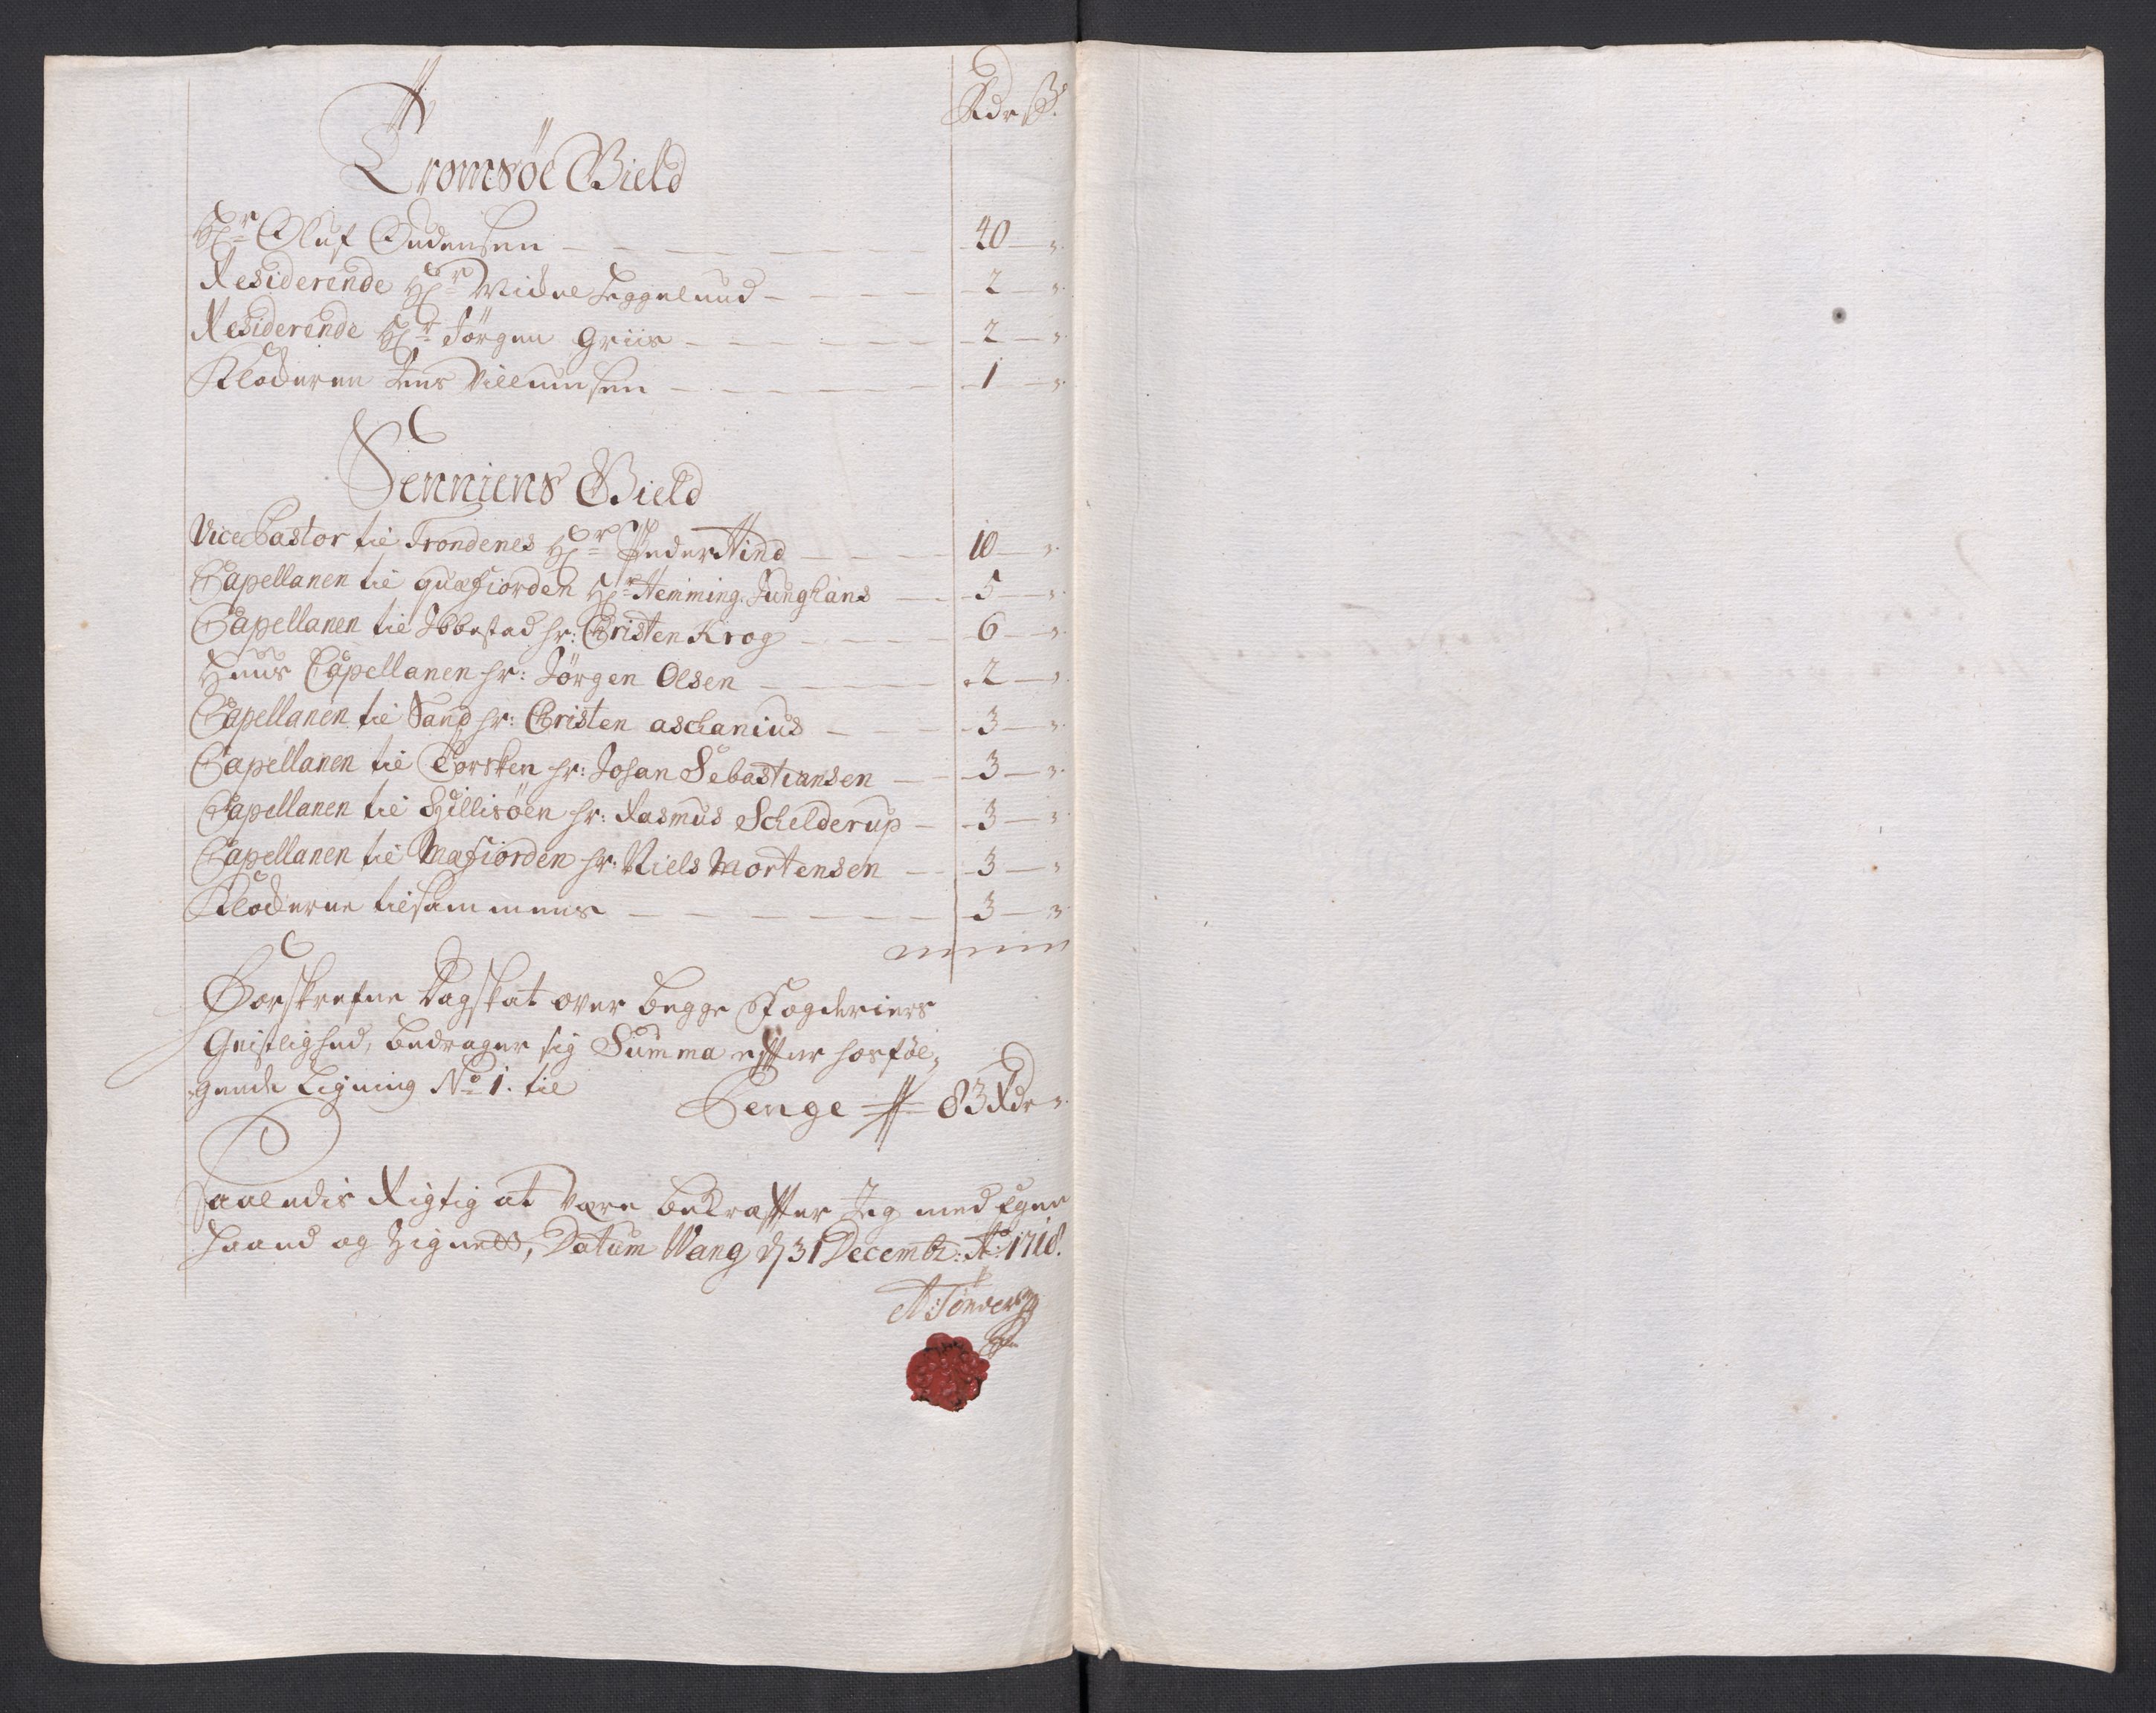 Rdr ß.
Tromsöe Gield
Hr Oluf Oudensen 40
Residerende Hr Mickel Leggelund 2
Residerende Hr Jörgen Griis 2
Klockeren Jens Villumsen 1
Senniens Gield
Vice Pastor til Trondenes Hr Peder Hind 10
Capellanen til quæfiorden Hr Hemming Junghans 5
Capellanen til Ibbestad hr: Christen Krog 6
Hans Capellanen hr: Jörgen Olsen 2
Capellanen til Sand hr: Christen aschanius 3
Capellanen til Torsken hr: Johan Sebastiansen 3
Capellanen til Hillisöen hr: Rasmus Schelderup 3
Capellanen til Mafiorden hr: Niels Mortensen 3
Klockerne tilsammens 3
Forskrefne Dagskat over begge Fogderiers
Geistlighed, bedrager sig Summa efter hosföl-
gende Ligning No 1. til
Penge 83 Rdr
Saaledis Rigtig at være bekræfter Jeg med Egen
Haand og Zignett, Datum Wang d 31 Decembr: Ao 1718.
A Tönder